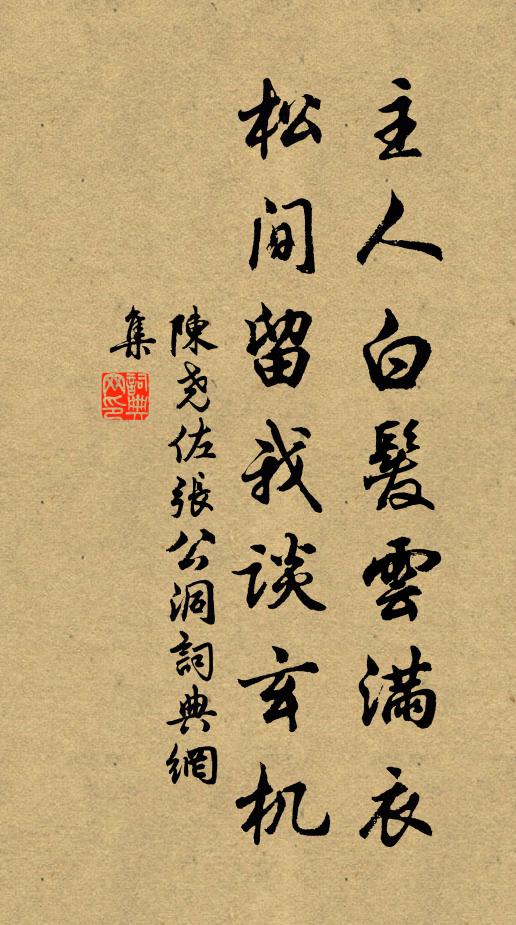 主人白髮雲滿衣
松间留我談玄机
陳尧佐張公洞詞典網
集
詞典
網印